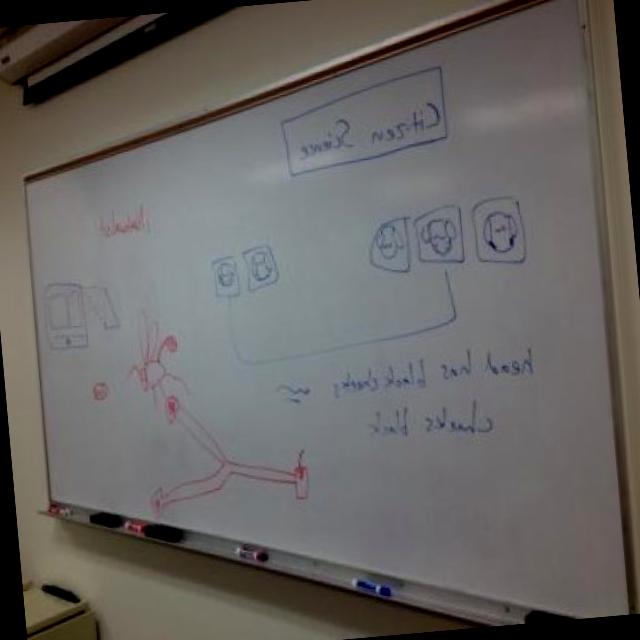 Citizen Science
head has black streaks
cheeks black